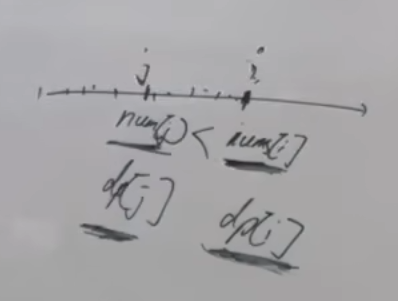 j i
num[j] < nums[i]
dp[j] dp[i]